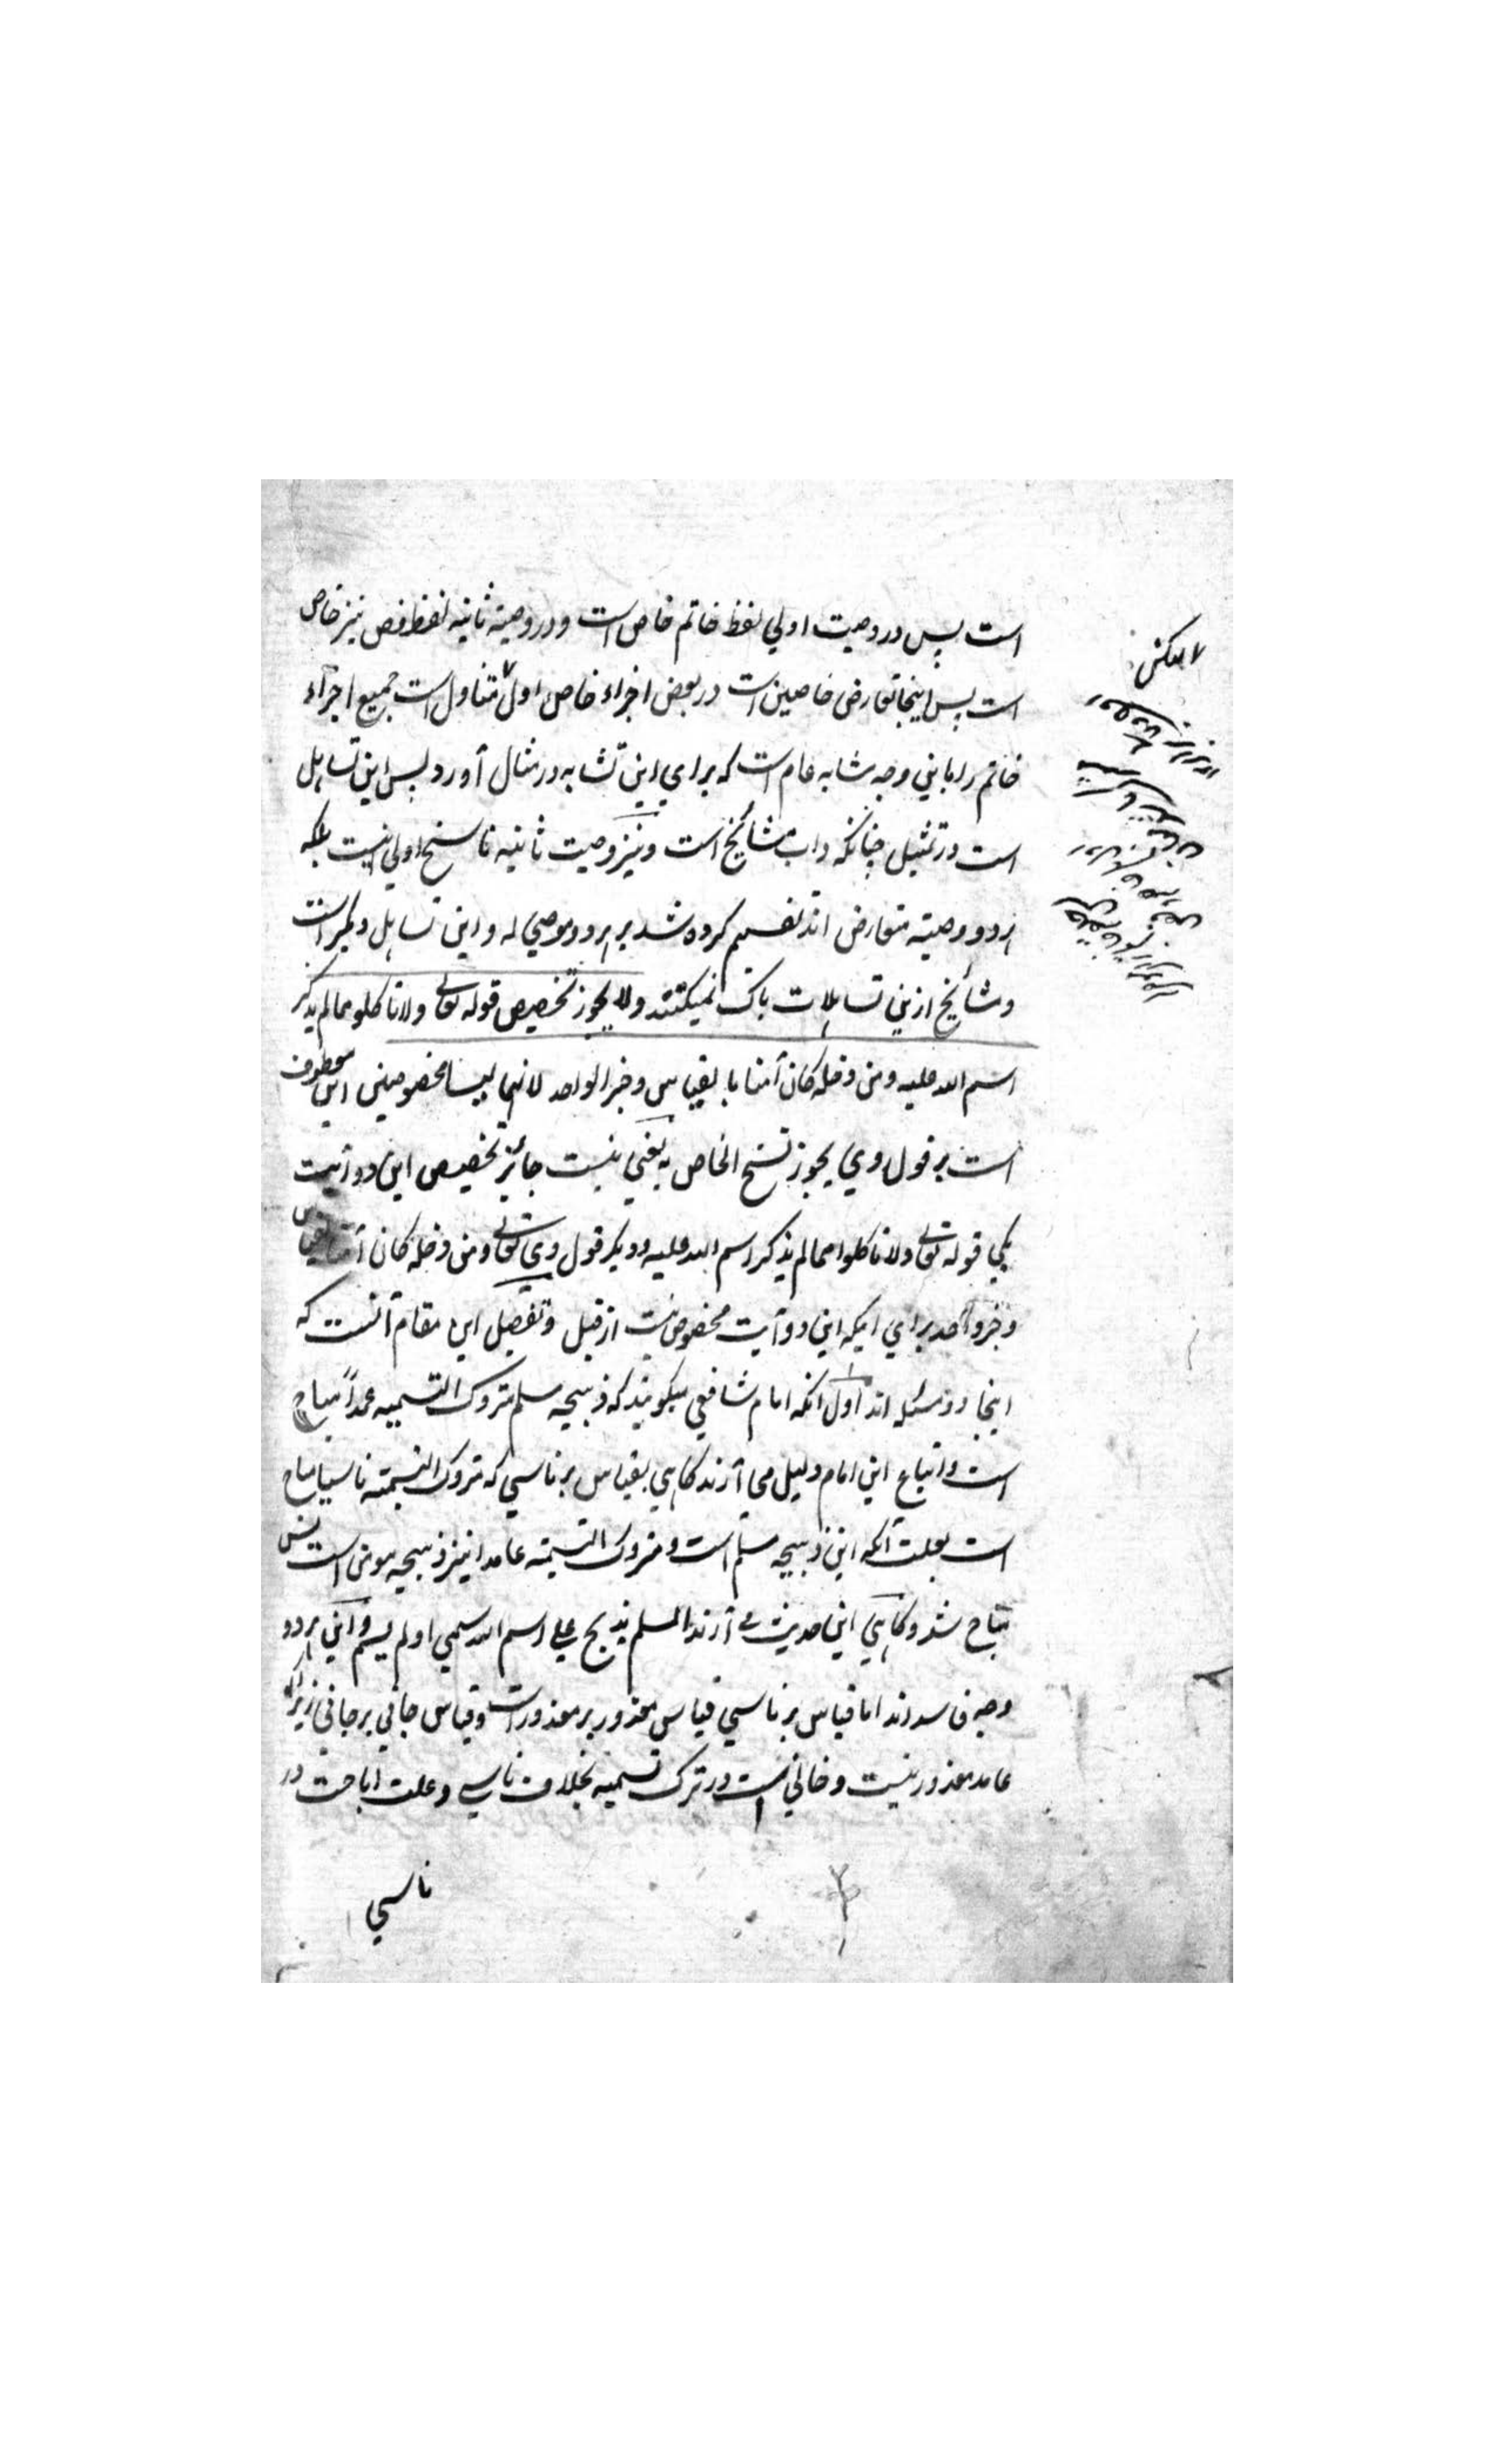 است پس در وصیت اولی لفظ خاتم خاص است و در وصیته ثانیه لفظ فص نیز خاص
است پس اینجا تعارض خاصین است در بعض اجزاء خاص اول متناول است جمیع اجزاء
خاتم را باینی وجه مشابه عام است که برای این تشابه در مثال آورد پس این تساهل
است در تمثیل چنانکه داب مشائخ است و نیز وصیت ثانیه ناسخ اولی نیست بلکه
هر دو وصیته متعارض اند تقسیم کرده شد بر هر دو موصی له و این تساهل دیگر است
و مشائخ ازینی تساهلات باک نمیکنند ولا یجوز تخصیص قوله تعالی ولا تاکلوا مما لم یذکر
اسم الله علیه ومن دخله کان آمنا بالقیاس وخبر الواحد لانهما لیسا مخصوصین این معطوف
است بر قول وی یجوز نسخ الخاص به یعنی نیست جائز تخصیص این دو آیت
یکی قوله تعالی ولا تاکلوا مما لم یذکر اسم الله علیه و دیگر قول وی تعالی ومن دخله کان آمنا بقیاس
و خبر واحد برای اینکه این دو آیت مخصوص نیست از قبل و تفصیل این مقام آنست که
اینجا دو مسئله اند اول آنکه امام شافعی میگویند که ذبیحه مسلم متروک التسمیه عمداً مباح
است و اتباع این امام دلیل می آرند کاهی بقیاس بر ناسی که متروک التسمیته ناسیا مباح
است بعلت آنکه این ذبیحه مسلم است و متروک التسمیته عامدا نیز ذبیحه مومن است پس
مباح شد و کاهی این حدیث می آرند المسلم یذبح علی اسم الله سمی او لم یسم و این هر دو
وجه فاسد اند اما قیاس بر ناسی قیاس معذور بر معذور است و قیاس جانی بر جانی زیراکه
عامد معذور نیست و جانی است در ترک تسمیه بخلاف ناسی و علت اباحت در
ناسی